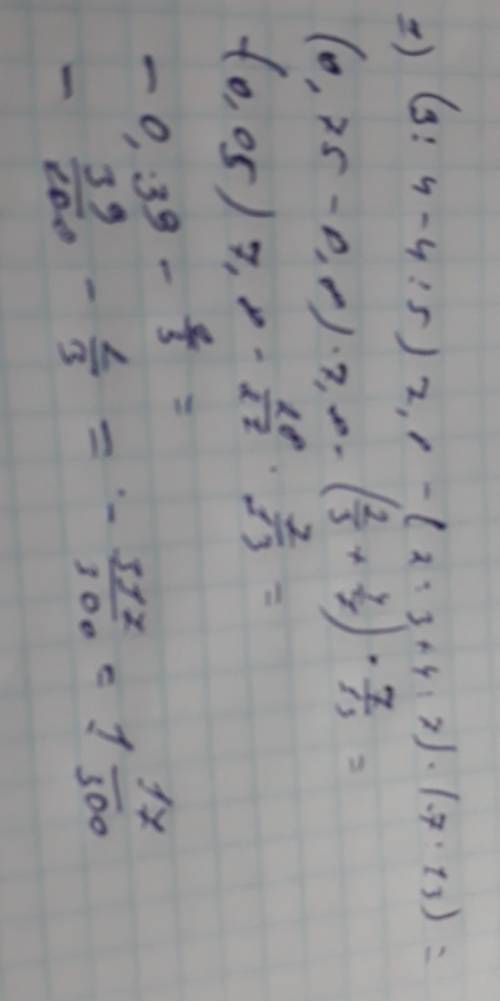 2) (3:4-4:5) 7,8-(2:3+4:7)·(7:13)=
(0,75-0,8)·7,8-(2/3+4/7)·7/13=
-(0,05) 7,8-26/21·7/13=
-0,39-2/3=
-39/100-2/3=-317/300=1 17/300